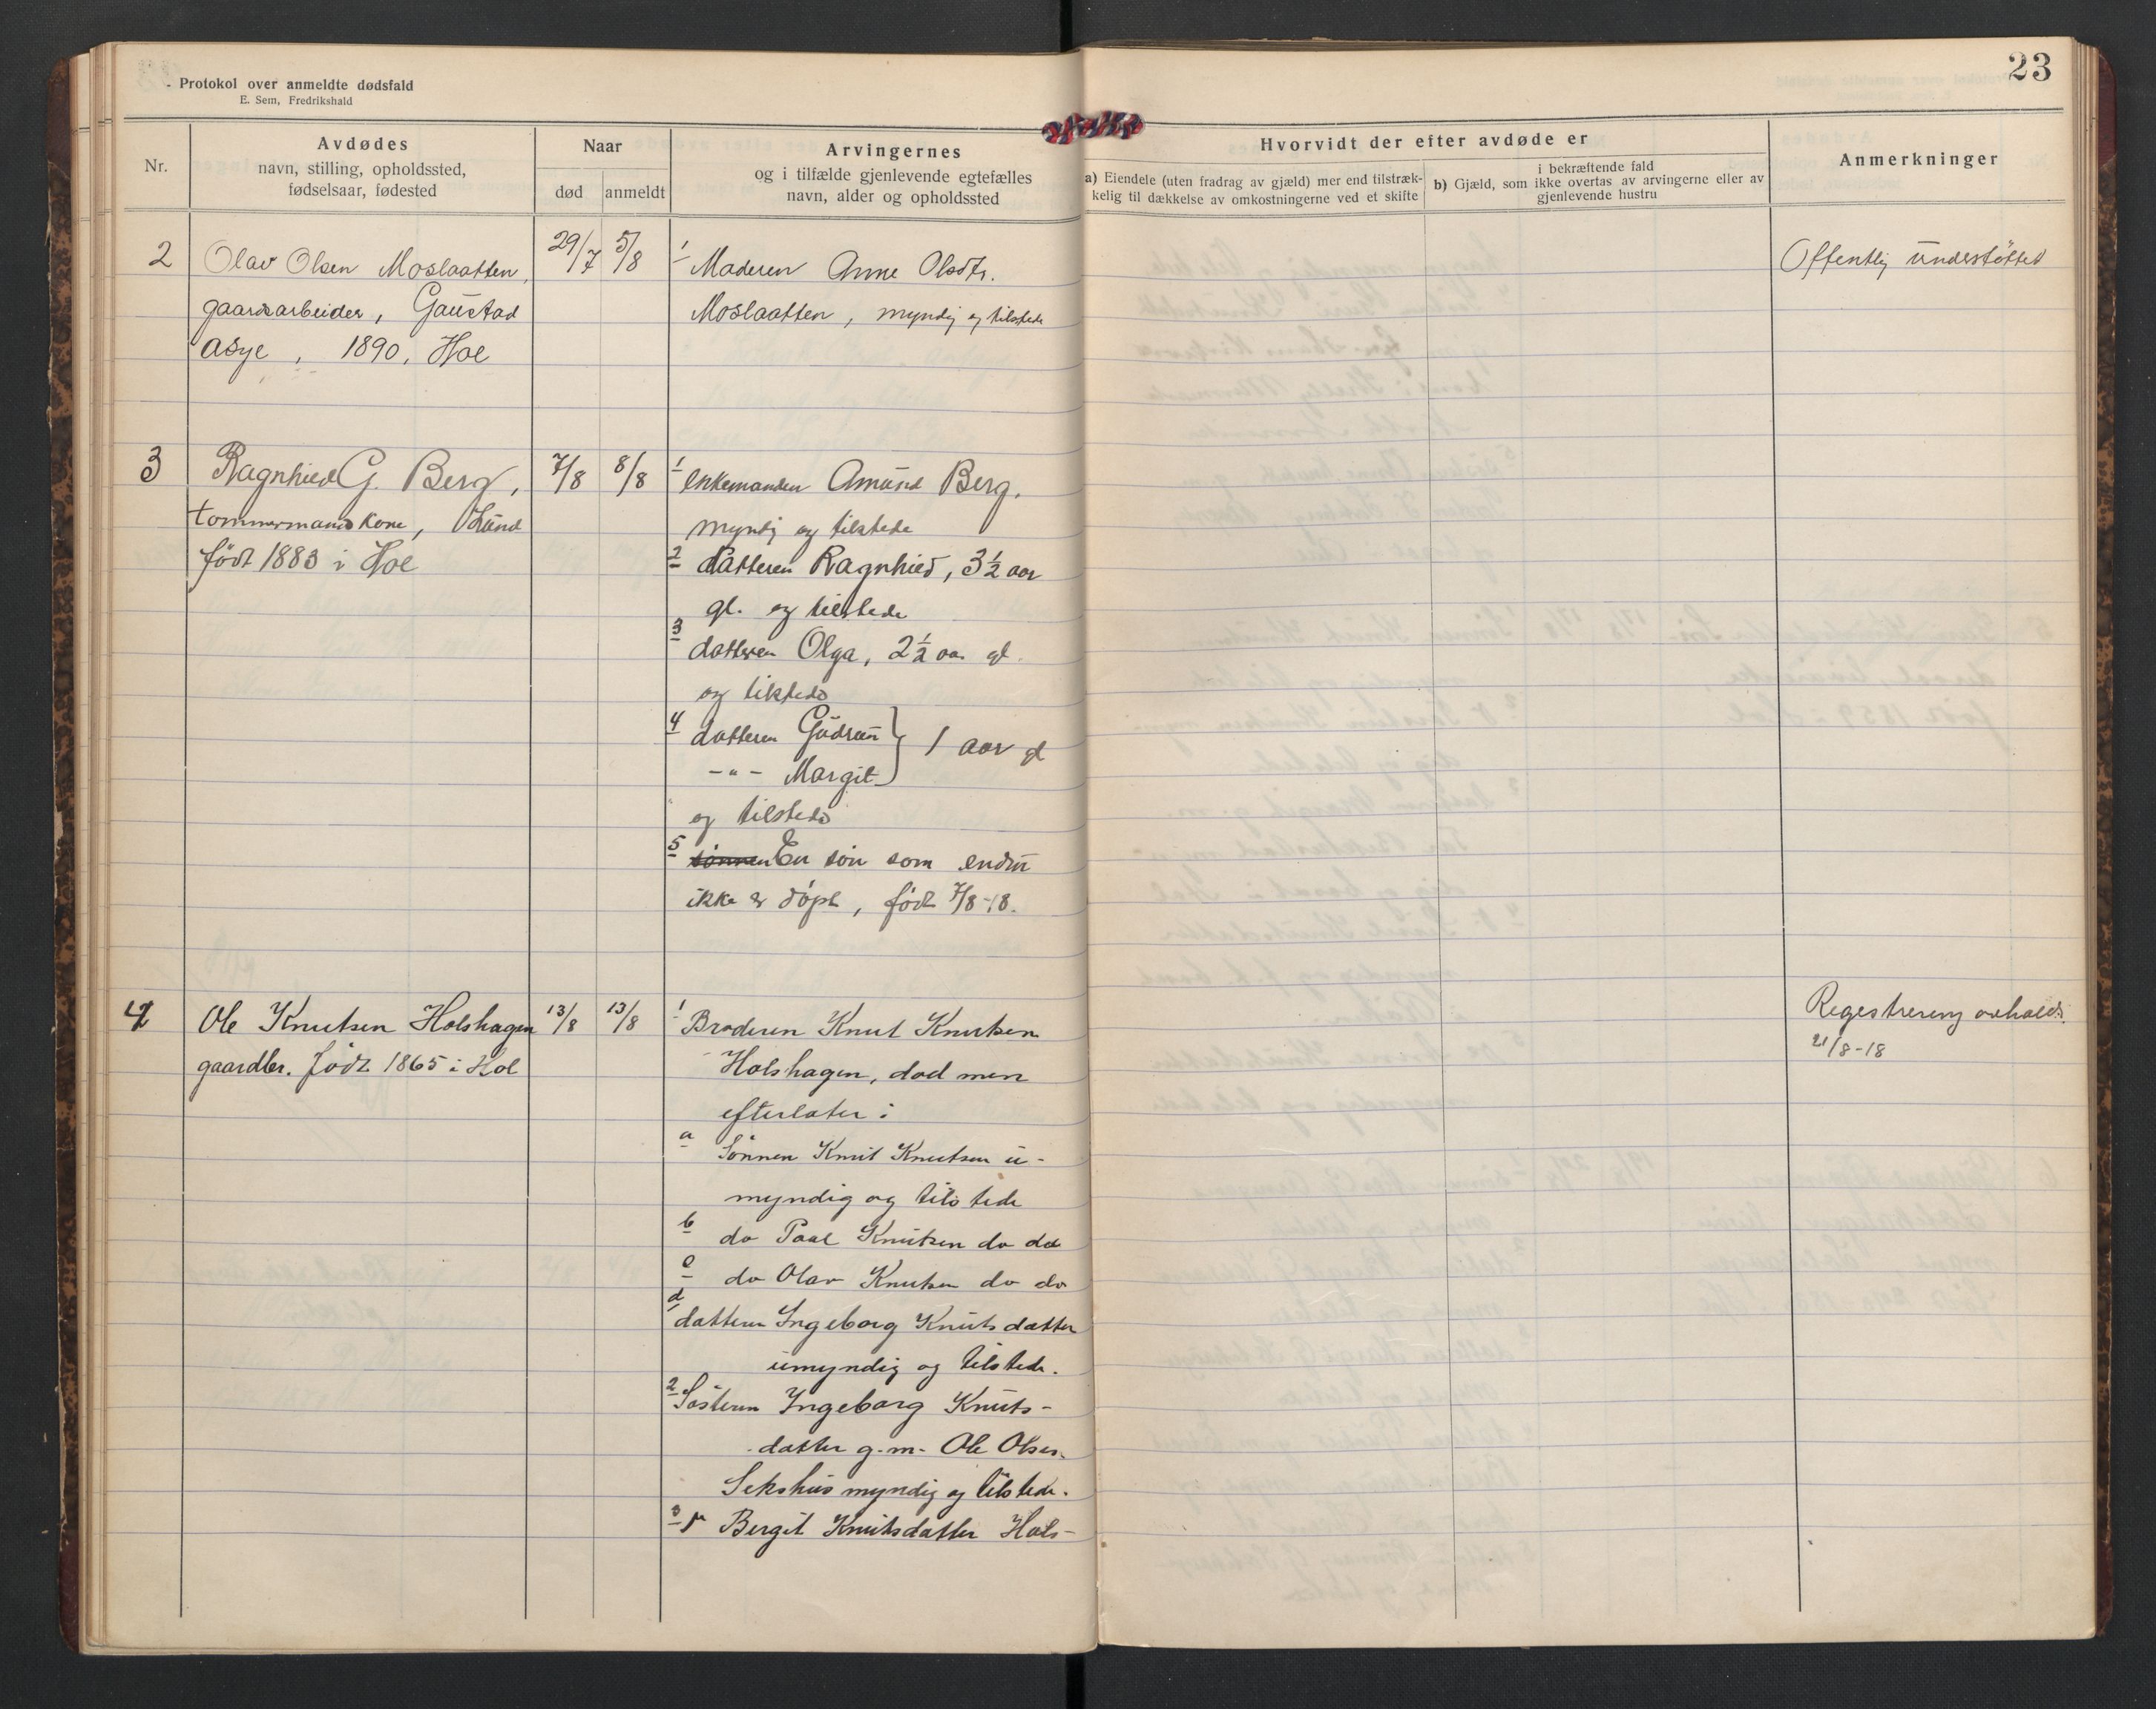 Protokol over anmeldte dødsfald
E. Sem, Fredrikshald
23
Nr.
Avdødes
navn, stilling, opholdssted,
fødselsaar, fødested
Naar
død
anmeldt
Arvingernes
og i tilfælde gjenlevende egtefælles
navn, alder og opholdssted
Hvorvidt der efter avdøde er
a) Eiendele (uten fradrag av gjæld) mer end tilstræk-
kelig til dækkelse av omkostningerne ved et skifte
i bekræftende fald
b) Gjæld, som ikke overtas av arvingerne eller av
gjenlevende hustru
Anmerkninger
2
Olav Olsen Moslaatten,
gaardsarbeider, Gaustad
Asyl, 1890, Hol
29/7
5/8
1 Moderen Anne Olsdtr.
Moslaatten, myndig og tilstede
Offentlig understöttet
3
Ragnhild G. Berg,
tømmermands kone, Lund
född 1883 i Hol
7/8
8/8
1 enkemanden Amund Berg,
myndig og tilstede
2 datteren Ragnhild, 3½ aar
gl. og tilstede
3 datteren Olga, 2½ aar gl.
og tilstede
4 datteren Gudrun } 1 aar gl
-"- Margit
og tilstede
5 sönnen En sön som endnu
ikke er döpt, född 7/8-18.
4
Ole Knutsen Holshagen
gaardbr. född 1865 i Hol
13/8
13/8
1 Broderen Knut Knutsen
Holshagen, död men
efterlater:
a Sönnen Knut Knutsen u-
myndig og tilstede
b do Paal Knutsen do do
c do Olav Knutsen do do
d datteren Ingeborg Knutsdatter
umyndig og tilstede.
2 Sösteren Ingeborg Knuts-
datter g.m. Ole Olsen
Sekshus myndig og tilstede.
3 " Bergit Knutsdatter Hols-
Registrering avholdt
21/8-18